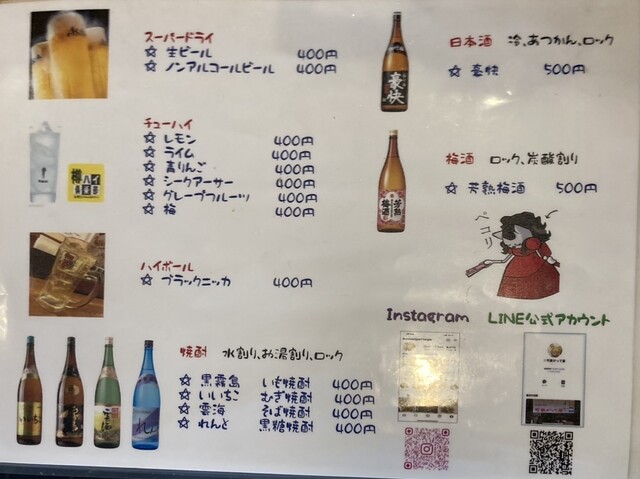 スーパードライ
☆ 生ビール 400円
☆ ノンアルコールビール 400円
チューハイ
☆ レモン 400円
☆ ライム 400円
☆ 青りんご 400円
☆ シークアーサー 400円
☆ グレープフルーツ 400円
☆ 梅 400円
樽ハイ
倶楽部
ハイボール
☆ ブラックニッカ 400円
焼酎 水割り、お湯割り、ロック
☆ 黒霧島 いも焼酎 400円
☆ いいちこ むぎ焼酎 400円
☆ 雲海 そば焼酎 400円
☆ れんと 黒糖焼酎 400円
豪快
日本酒 冷、あつかん、ロック
☆ 豪快 500円
芳熟
梅酒
梅酒 ロック、炭酸割り
☆ 芳熟梅酒 500円
ペコリ
Instagram LINE公式アカウント